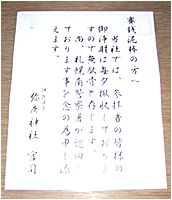 賽銭泥棒の方へ
当社では、参拝者の皆様の
御浄財は毎夕撤収しておりま
すので無駄骨と存じます。
尚、札幌南警察署が巡回し
ております事を念の為申し添
えます。
弥彦神社 宮司